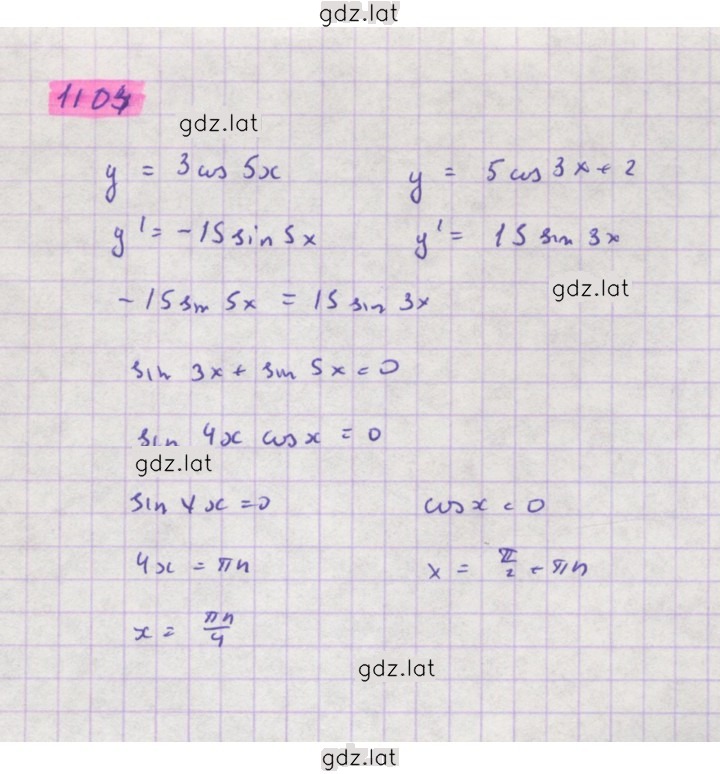 gdz.lat
1103
gdz.lat
y = 3 cos 5x y = 5 cos 3x + 2
y' = -15 sin 5x y' = 15 sin 3x
gdz.lat
-15 sin 5x = 15 sin 3x
sin 3x + sin 5x = 0
sin 4x cos x = 0
gdz.lat
sin 4x = 0 cos x = 0
4x = πn x = π/2 + πn
x = πn/4
gdz.lat
gdz.lat